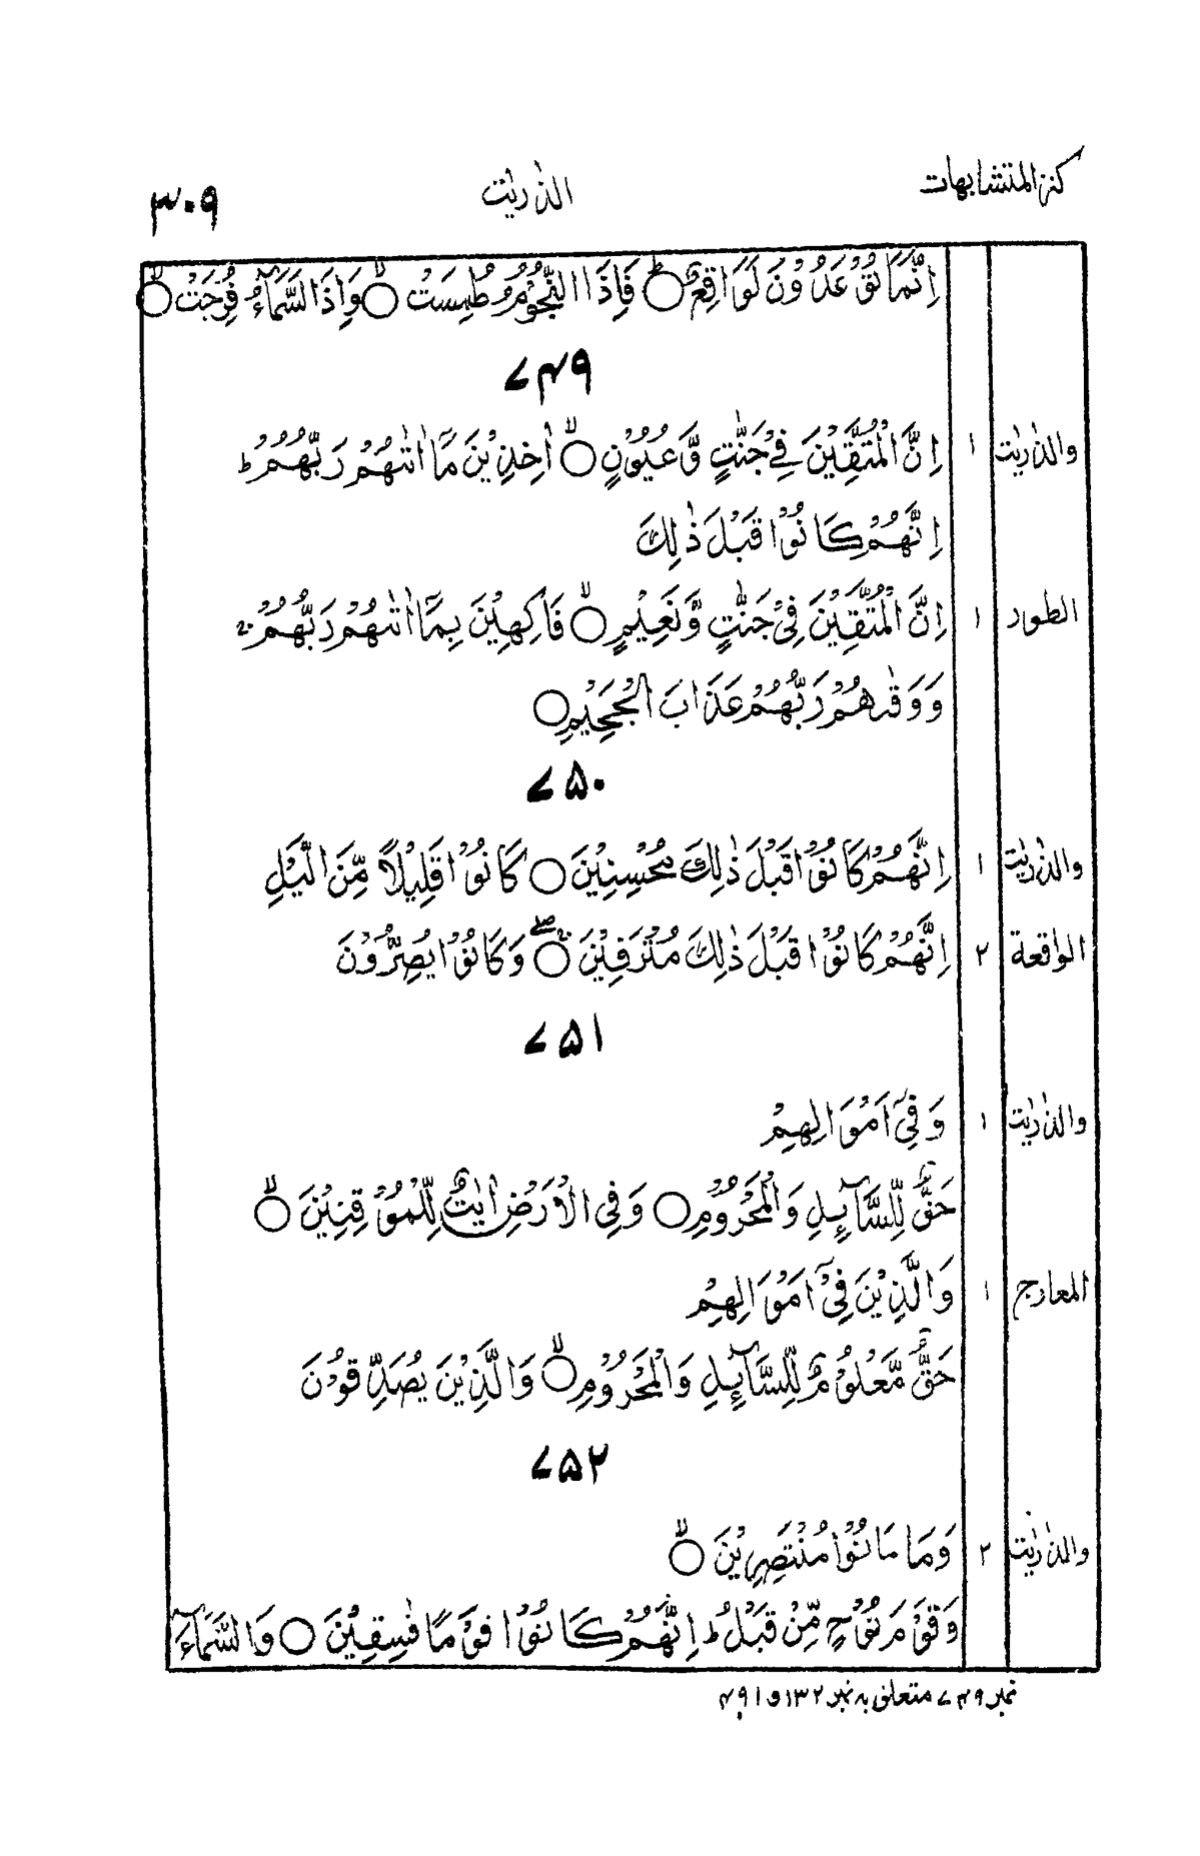 كنز المتشابهات الذٰريٰت ۳۰۹
اِنَّمَا تُوْعَدُوْنَ لَوَاقِعٌ ؕ○ فَاِذَا النُّجُوْمُ طُمِسَتْ ۙ○ وَاِذَا السَّمَآءُ فُرِجَتْ ۙ○
۷۴۹
والذٰريٰت ۱ اِنَّ الْمُتَّقِيْنَ فِيْ جَنّٰتٍ وَّعُيُوْنٍ ۙ○ اٰخِذِيْنَ مَآ اٰتٰىهُمْ رَبُّهُمْ ؕ
اِنَّهُمْ كَانُوْا قَبْلَ ذٰلِكَ
الطور ۱ اِنَّ الْمُتَّقِيْنَ فِيْ جَنّٰتٍ وَّنَعِيْمٍ ۙ○ فَاكِهِيْنَ بِمَآ اٰتٰىهُمْ رَبُّهُمْ ۚ
وَوَقٰىهُمْ رَبُّهُمْ عَذَابَ الْجَحِيْمِ ○
۷۵۰
والذٰريٰت ۱ اِنَّهُمْ كَانُوْا قَبْلَ ذٰلِكَ مُحْسِنِيْنَ ○ كَانُوْا قَلِيْلًا مِّنَ الَّيْلِ
الواقعة ۲ اِنَّهُمْ كَانُوْا قَبْلَ ذٰلِكَ مُتْرَفِيْنَ ۚۖ○ وَكَانُوْا يُصِرُّوْنَ
۷۵۱
والذٰريٰت ۱ وَفِيْٓ اَمْوَالِهِمْ
حَقٌّ لِّلسَّآئِلِ وَالْمَحْرُوْمِ ○ وَفِي الْاَرْضِ اٰيٰتٌ لِّلْمُوْقِنِيْنَ ۙ○
المعارج ۱ وَالَّذِيْنَ فِيْٓ اَمْوَالِهِمْ
حَقٌّ مَّعْلُوْمٌ لِّلسَّآئِلِ وَالْمَحْرُوْمِ ۙ○ وَالَّذِيْنَ يُصَدِّقُوْنَ
۷۵۲
والذٰريٰت ۲ وَمَا كَانُوْا مُنْتَصِرِيْنَ ۙ○
وَقَوْمَ نُوْحٍ مِّنْ قَبْلُ ؕ اِنَّهُمْ كَانُوْا قَوْمًا فٰسِقِيْنَ ○ وَالسَّمَآءَ
نمبر ۷۴۹ متعلق بہ نمبر ۱۳۲ و ۴۹۱